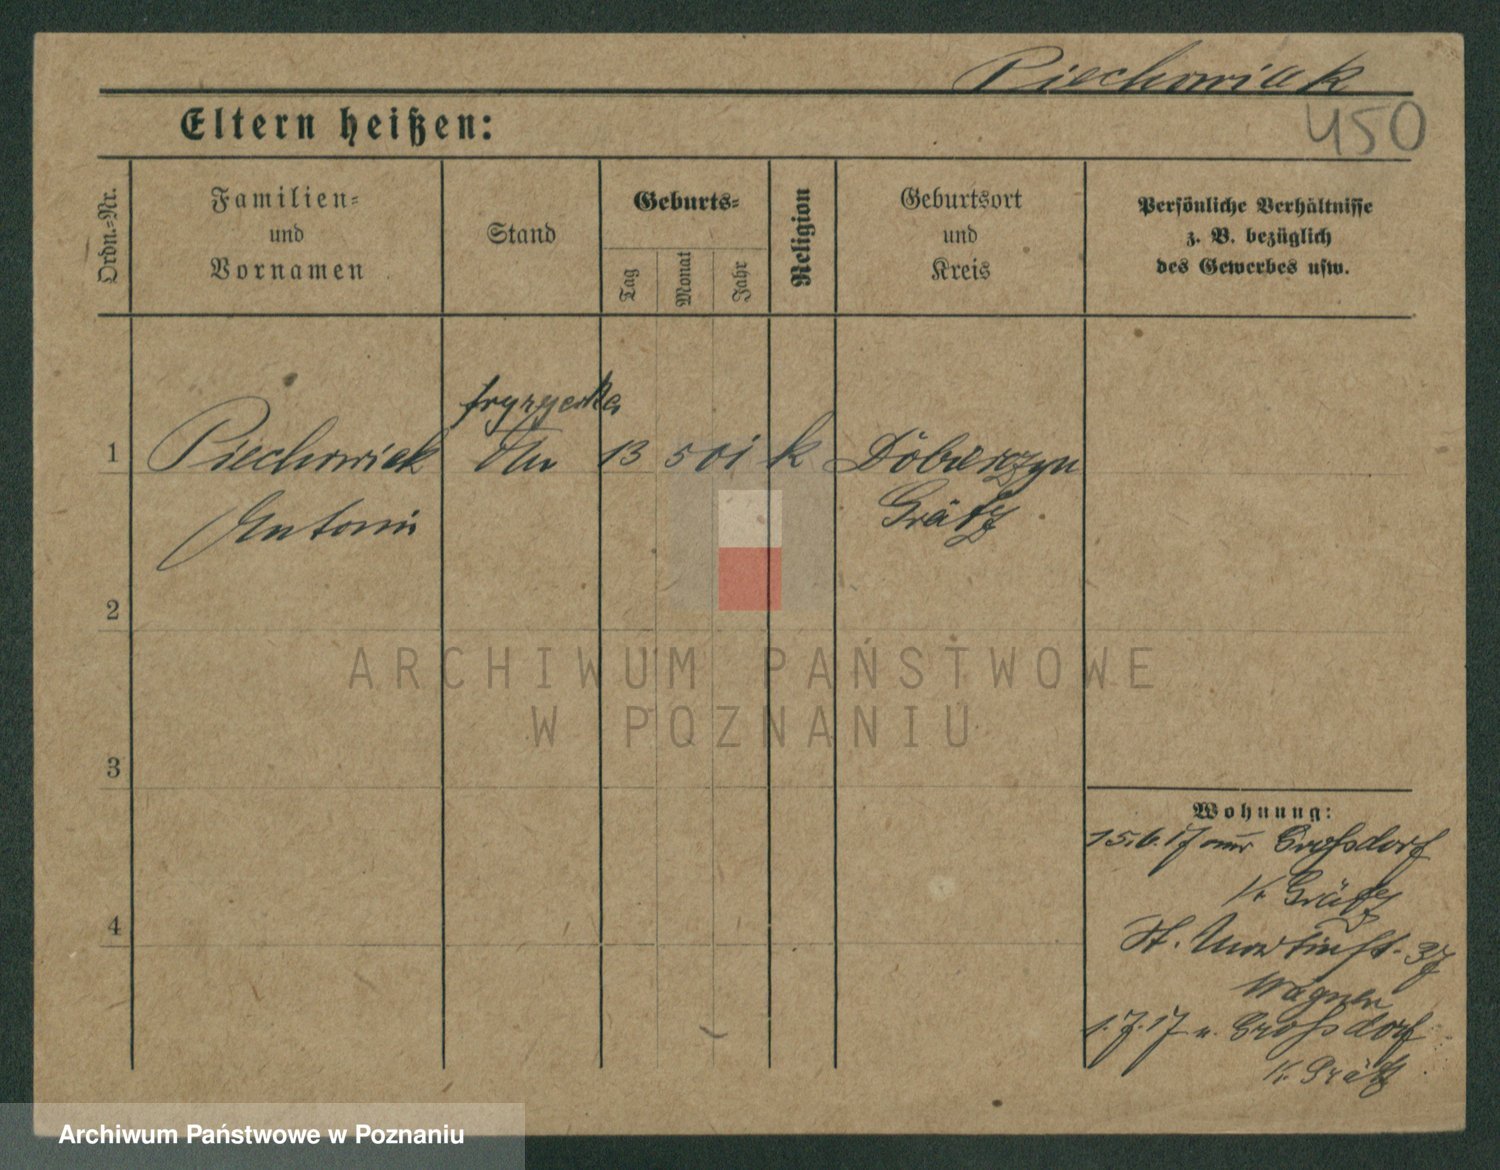 Piechowiak
450
Eltern heißen:
Ordn.-Nr.
Familien-
und
Vornamen
Stand
Geburts-
Tag
Monat
Jahr
Religion
Geburtsort
und
Kreis
Persönliche Verhältnisse
z. B. bezüglich
des Gewerbes usw.
fryzyerka
1 Piechowiak 13 5 01 k
Antonie Grätz
2
ARCHIWUM PAŃSTWOWE
W POZNANIU
3
Wohnung:
15.6.17 Grossdorf
Kr Grätz
4
St. Martinst. 37
Wagner
1.7.17 n. Grossdorf
K. Grätz
Archiwum Państwowe w Poznaniu